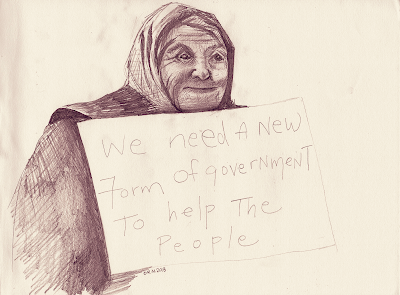 We need A New
Form of goverNmeNT
To help The
People